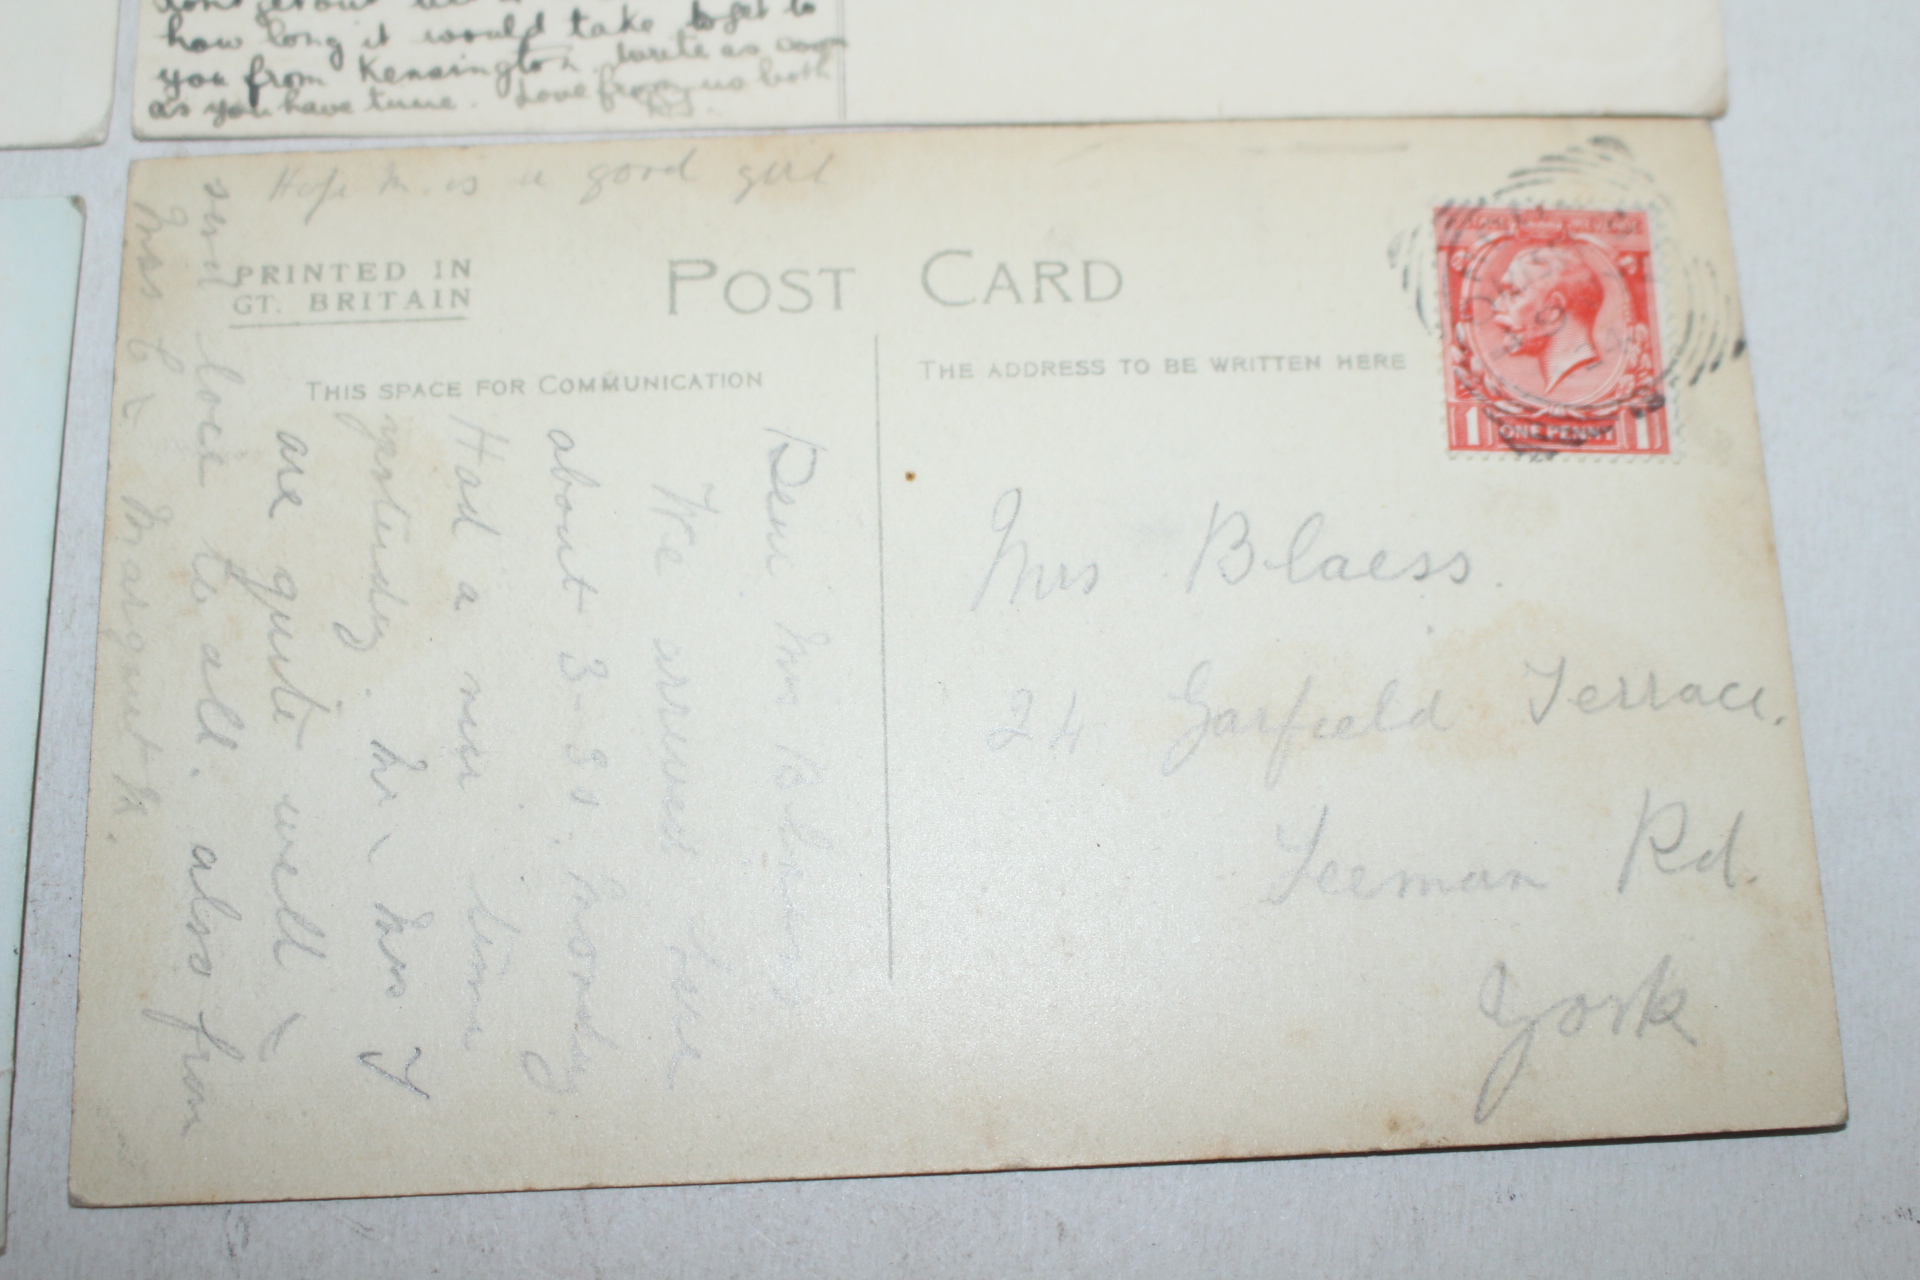 how long it would take to get to
you from Kensington. Write as soon
as you have time. Love from us both
Hope M. is a good girl
PRINTED IN
GT. BRITAIN
POST CARD
THIS SPACE FOR COMMUNICATION
THE ADDRESS TO BE WRITTEN HERE
Dear Mrs Blaess
We arrived here
about 3-30. Monday.
Had a nice time
yesterday. Mr & Mrs T
are quite well &
send love to all. also from
Mrs C &
ONE PENNY
1 1
Mrs Blaess.
24 Garfield Terrace.
Leeman Rd.
York